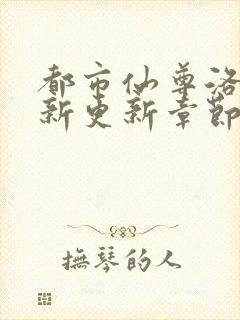 都市仙尊洛
新更新章節
撫琴的人